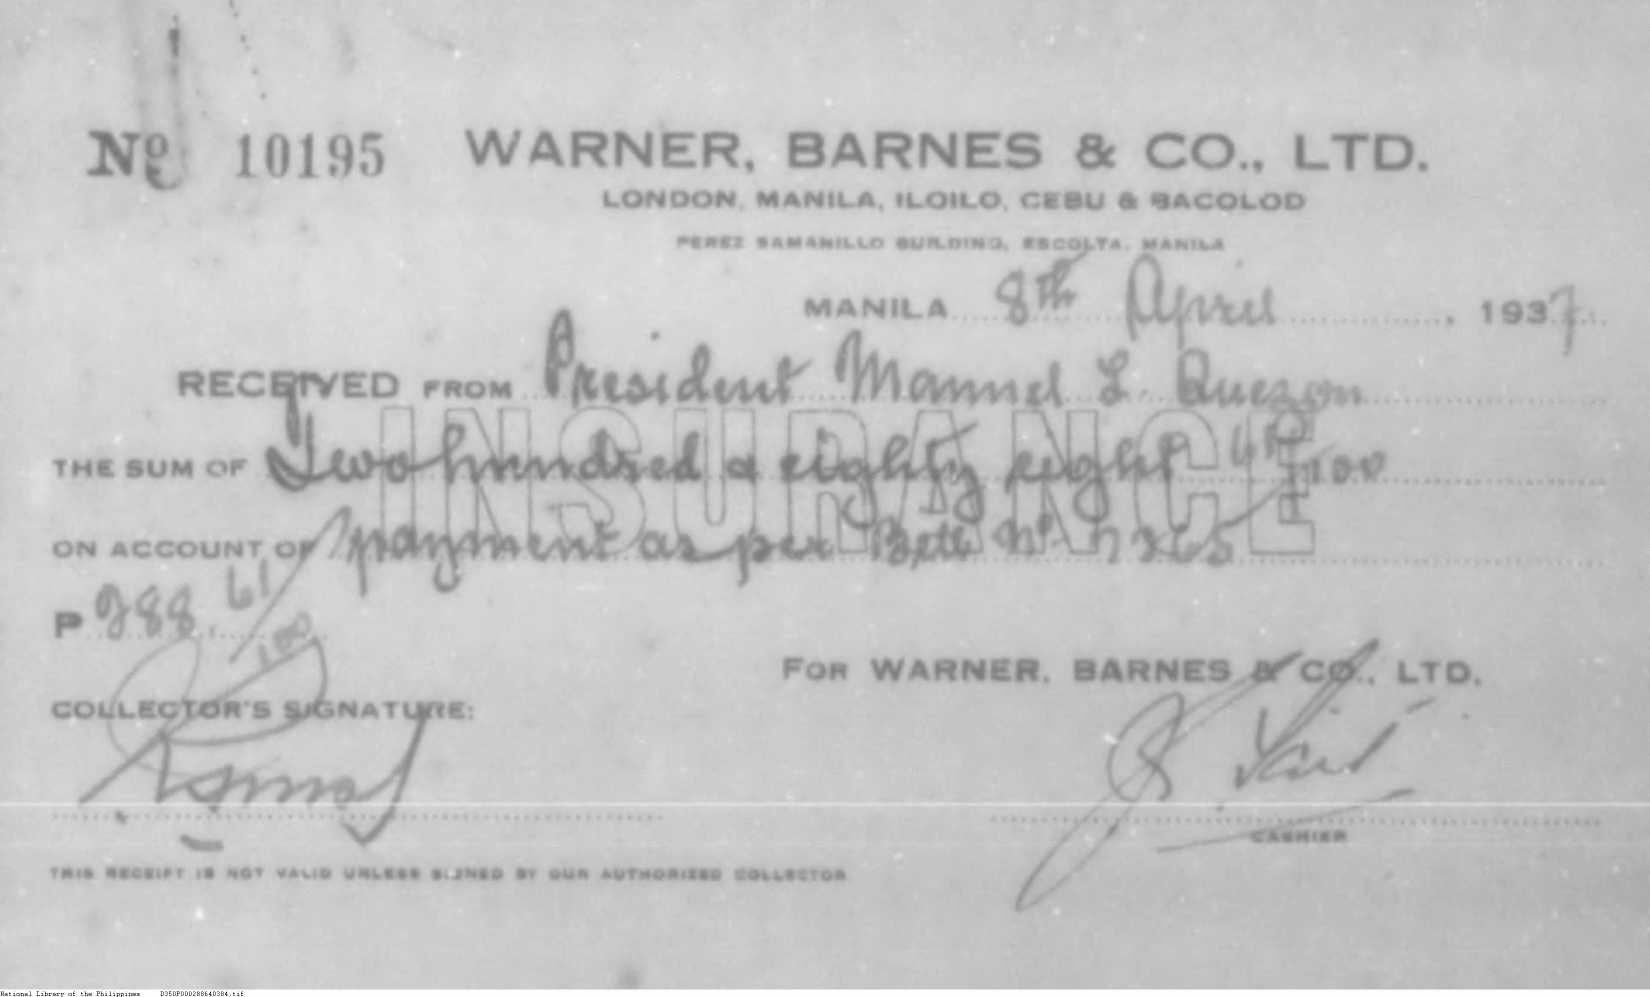 No 10195 WARNER, BARNES & CO., LTD.
LONDON, MANILA, ILOILO, CEBU & BACOLOD
PEREZ SAMANILLO BUILDING, ESCOLTA, MANILA
MANILA 8th April, 1937
RECEIVED FROM President Manuel L. Quezon
INSURANCE
THE SUM OF Two hundred & eighty eight 61/100
ON ACCOUNT OF payment as per No
P 288.61/100
FOR WARNER, BARNES & CO., LTD.
COLLECTOR'S SIGNATURE:
CASHIER
THIS RECEIPT IS NOT VALID UNLESS SIGNED BY OUR AUTHORIZED COLLECTOR
National Library of the Philippines D350P000288640384.tif